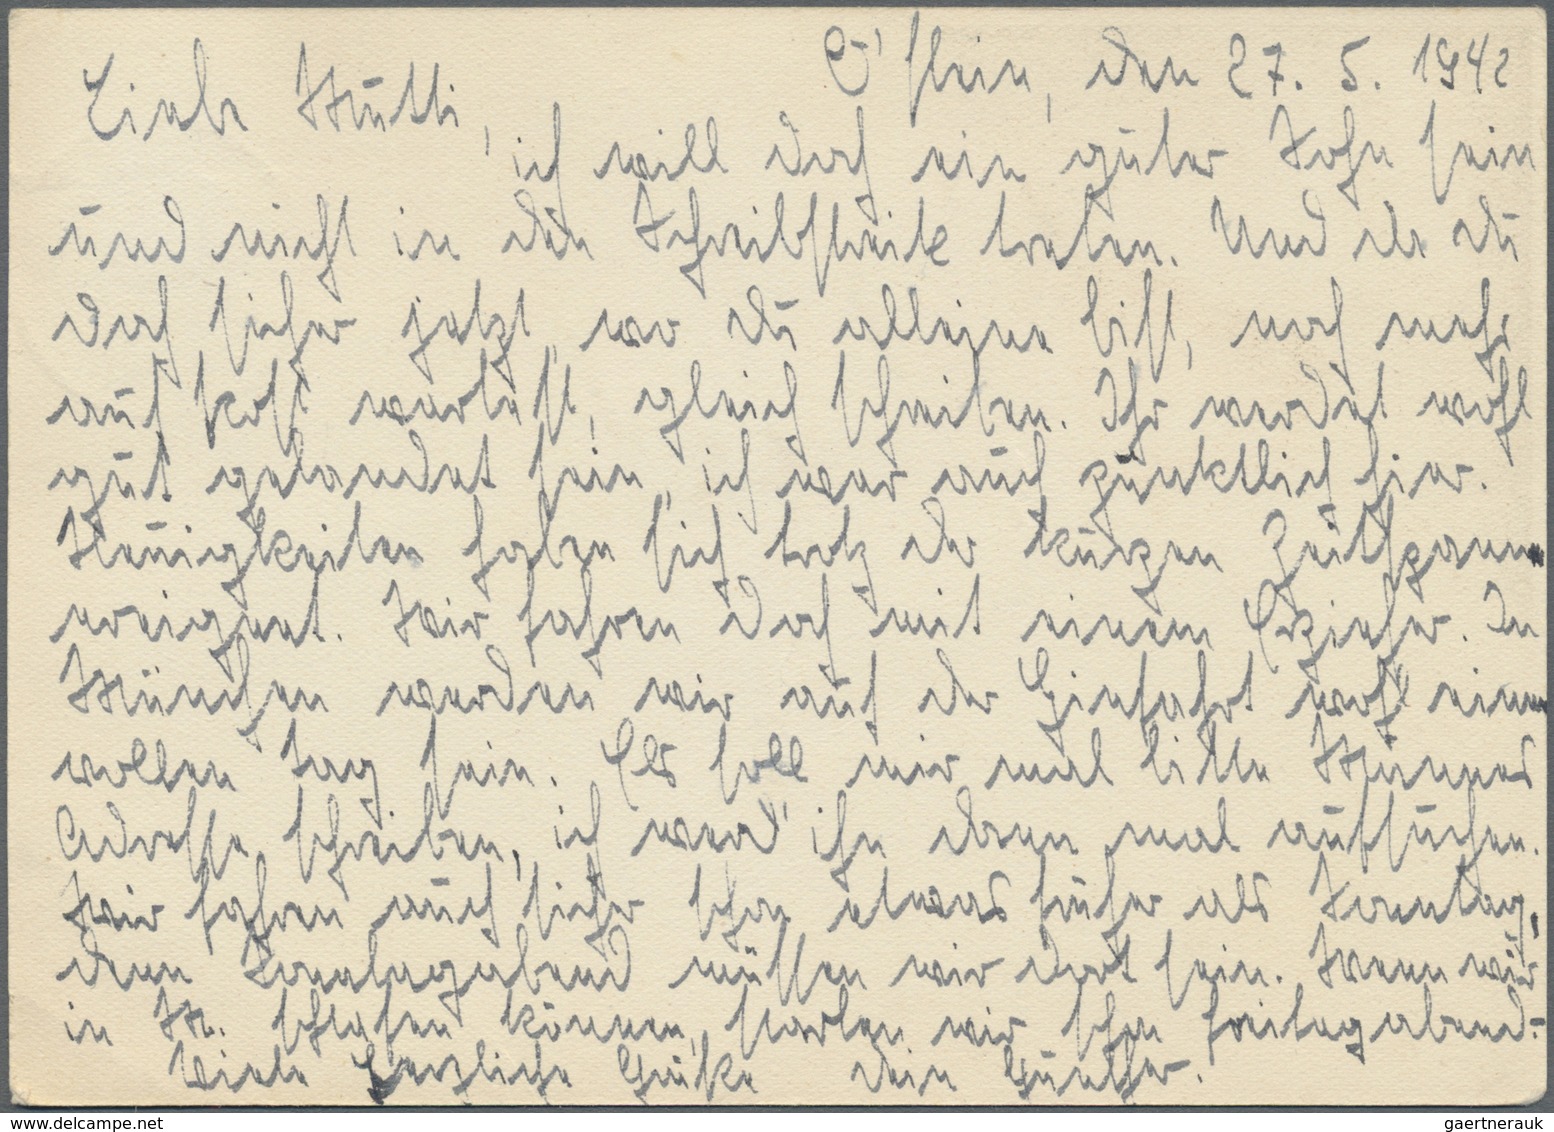 O'stein, den 27. 5. 1942
Liebe Mutti,
ich will doch ein guter Sohn sein
und nicht in den Schreibstreik treten. Und da du
doch sicher jetzt, wo du alleine bist, noch mehr
auf Post wartest, gleich schreiben. Ihr werdet wohl
gut gelandet sein, ich war auch pünktlich hier.
Neuigkeiten haben sich trotz der kurzen Zeitspanne
ereignet. Wir fahren doch mit einem Erzieher. In
München werden wir auf der Hinfahrt wohl einen
vollen Tag sein. Els soll mir mal bitte Männes
Adresse schreiben, ich werd' ihn dann mal aufsuchen.
Wir fahren auch sicher schon etwas früher als Sonntag,
denn Sonntagabend müssen wir dort sein. Wenn wir
in M. schlafen können, starten wir schon Freitagabend.-
Viele herzliche Grüße dein Günther.
gaertnerauk